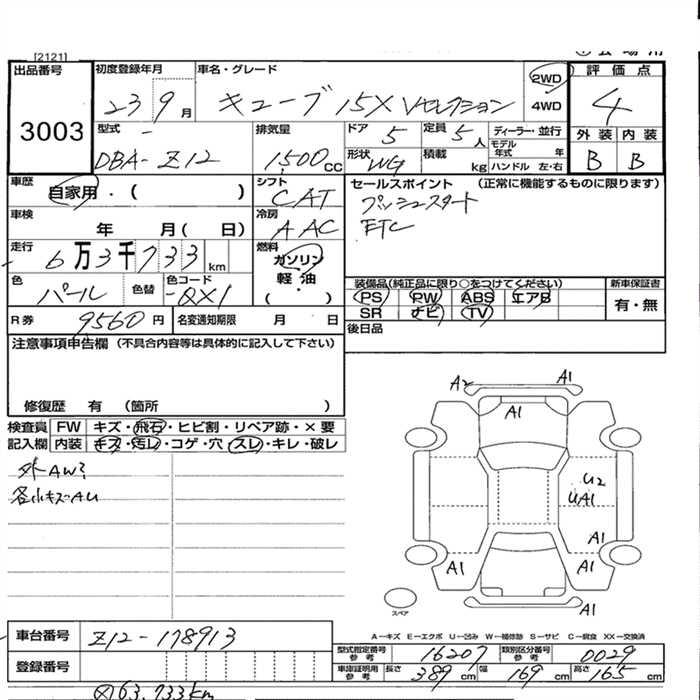 [2121]
出品番号
3003
初度登録年月
23 9 月
車名・グレード
キューブ 15X Vセレクション
2WD
4WD
評価点
4
外装 内装
B B
型式
DBA-Z12
排気量
1500 CC
ドア
5
定員
5 人
形状
WG
積載
kg
ディーラー・並行
モデル年式 年
ハンドル 左・右
車歴
自家用・( )
シフト
CAT
冷房
AAC
セールスポイント (正常に機能するものに限ります)
プッシュスタート
ETC
車検
年 月( 日)
走行
6万3千733 km
燃料
ガソリン
軽・油
( ・ )
色
パール
色替
色コード
QX1
装備品(純正品に限り○をつけてください)
PS PW ABS エアB
SR ナビ TV
新車保証書
有・無
R券
9560 円
名変通知期限 月 日
後日品
注意事項申告欄 (不具合内容等は具体的に記入して下さい)
修復歴 有 (箇所 )
検査員記入欄
FW キズ・飛石・ヒビ割・リペア跡・×要
内装 キズ・汚レ・コゲ・穴・スレ・キレ・破レ
外 AW
各小キズAU
A2
A1
A1
U2
UA1
A1
A1
A1
A1
スペア
A-キズ E-エクボ U-凹み W-補修跡 S-サビ C-腐食 XX-交換済
車台番号
Z12-178913
登録番号
型式指定番号 参考
16207
類別区分番号 参考
0029
車庫証明用 参考
長さ 389 cm 幅 169 cm 高さ 165 cm
63,733km